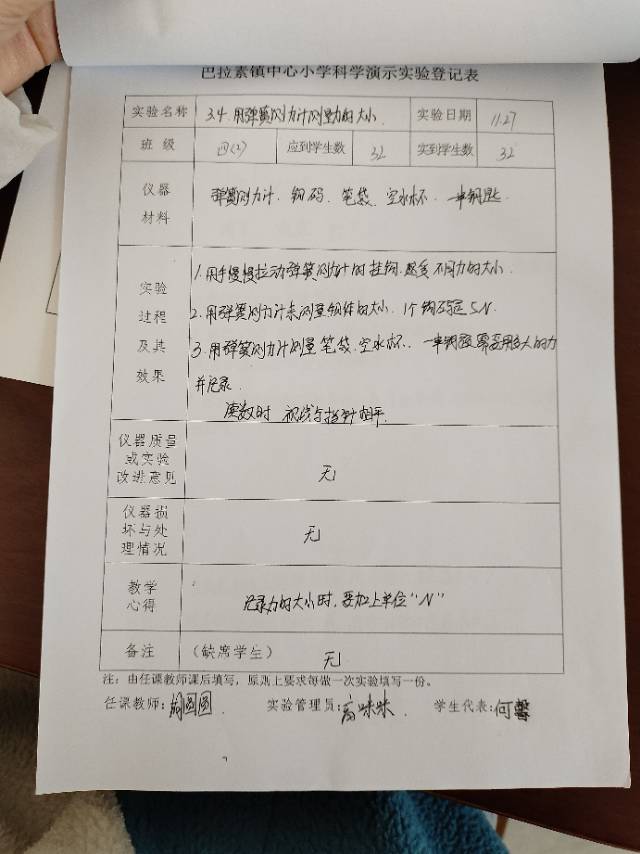 巴拉素镇中心小学科学演示实验登记表
实验名称 3.4 用弹簧测力计测量力的大小 实验日期 11.27
班级 四(2) 应到学生数 32 实到学生数 32
仪器材料 弹簧测力计、钩码、笔袋、空水杯、一串钥匙.
实验过程及其效果
1.用手慢慢拉动弹簧测力计的挂钩.感受不同力的大小.
2.用弹簧测力计来测量钩体的大小. 1个钩码是 5N.
3.用弹簧测力计测量笔袋.空水杯.、一串钥匙需要用多大的力
并记录.
读数时 视线与指针相平.
仪器质量或实验改进意见 无
仪器损坏与处理情况 无
教学心得 记录力的大小时,要加上单位“N”
备注 (缺席学生) 无
注:由任课教师课后填写,原则上要求每做一次实验填写一份。
任课教师: 圆圆. 实验管理员:高咪咪. 学生代表:何馨